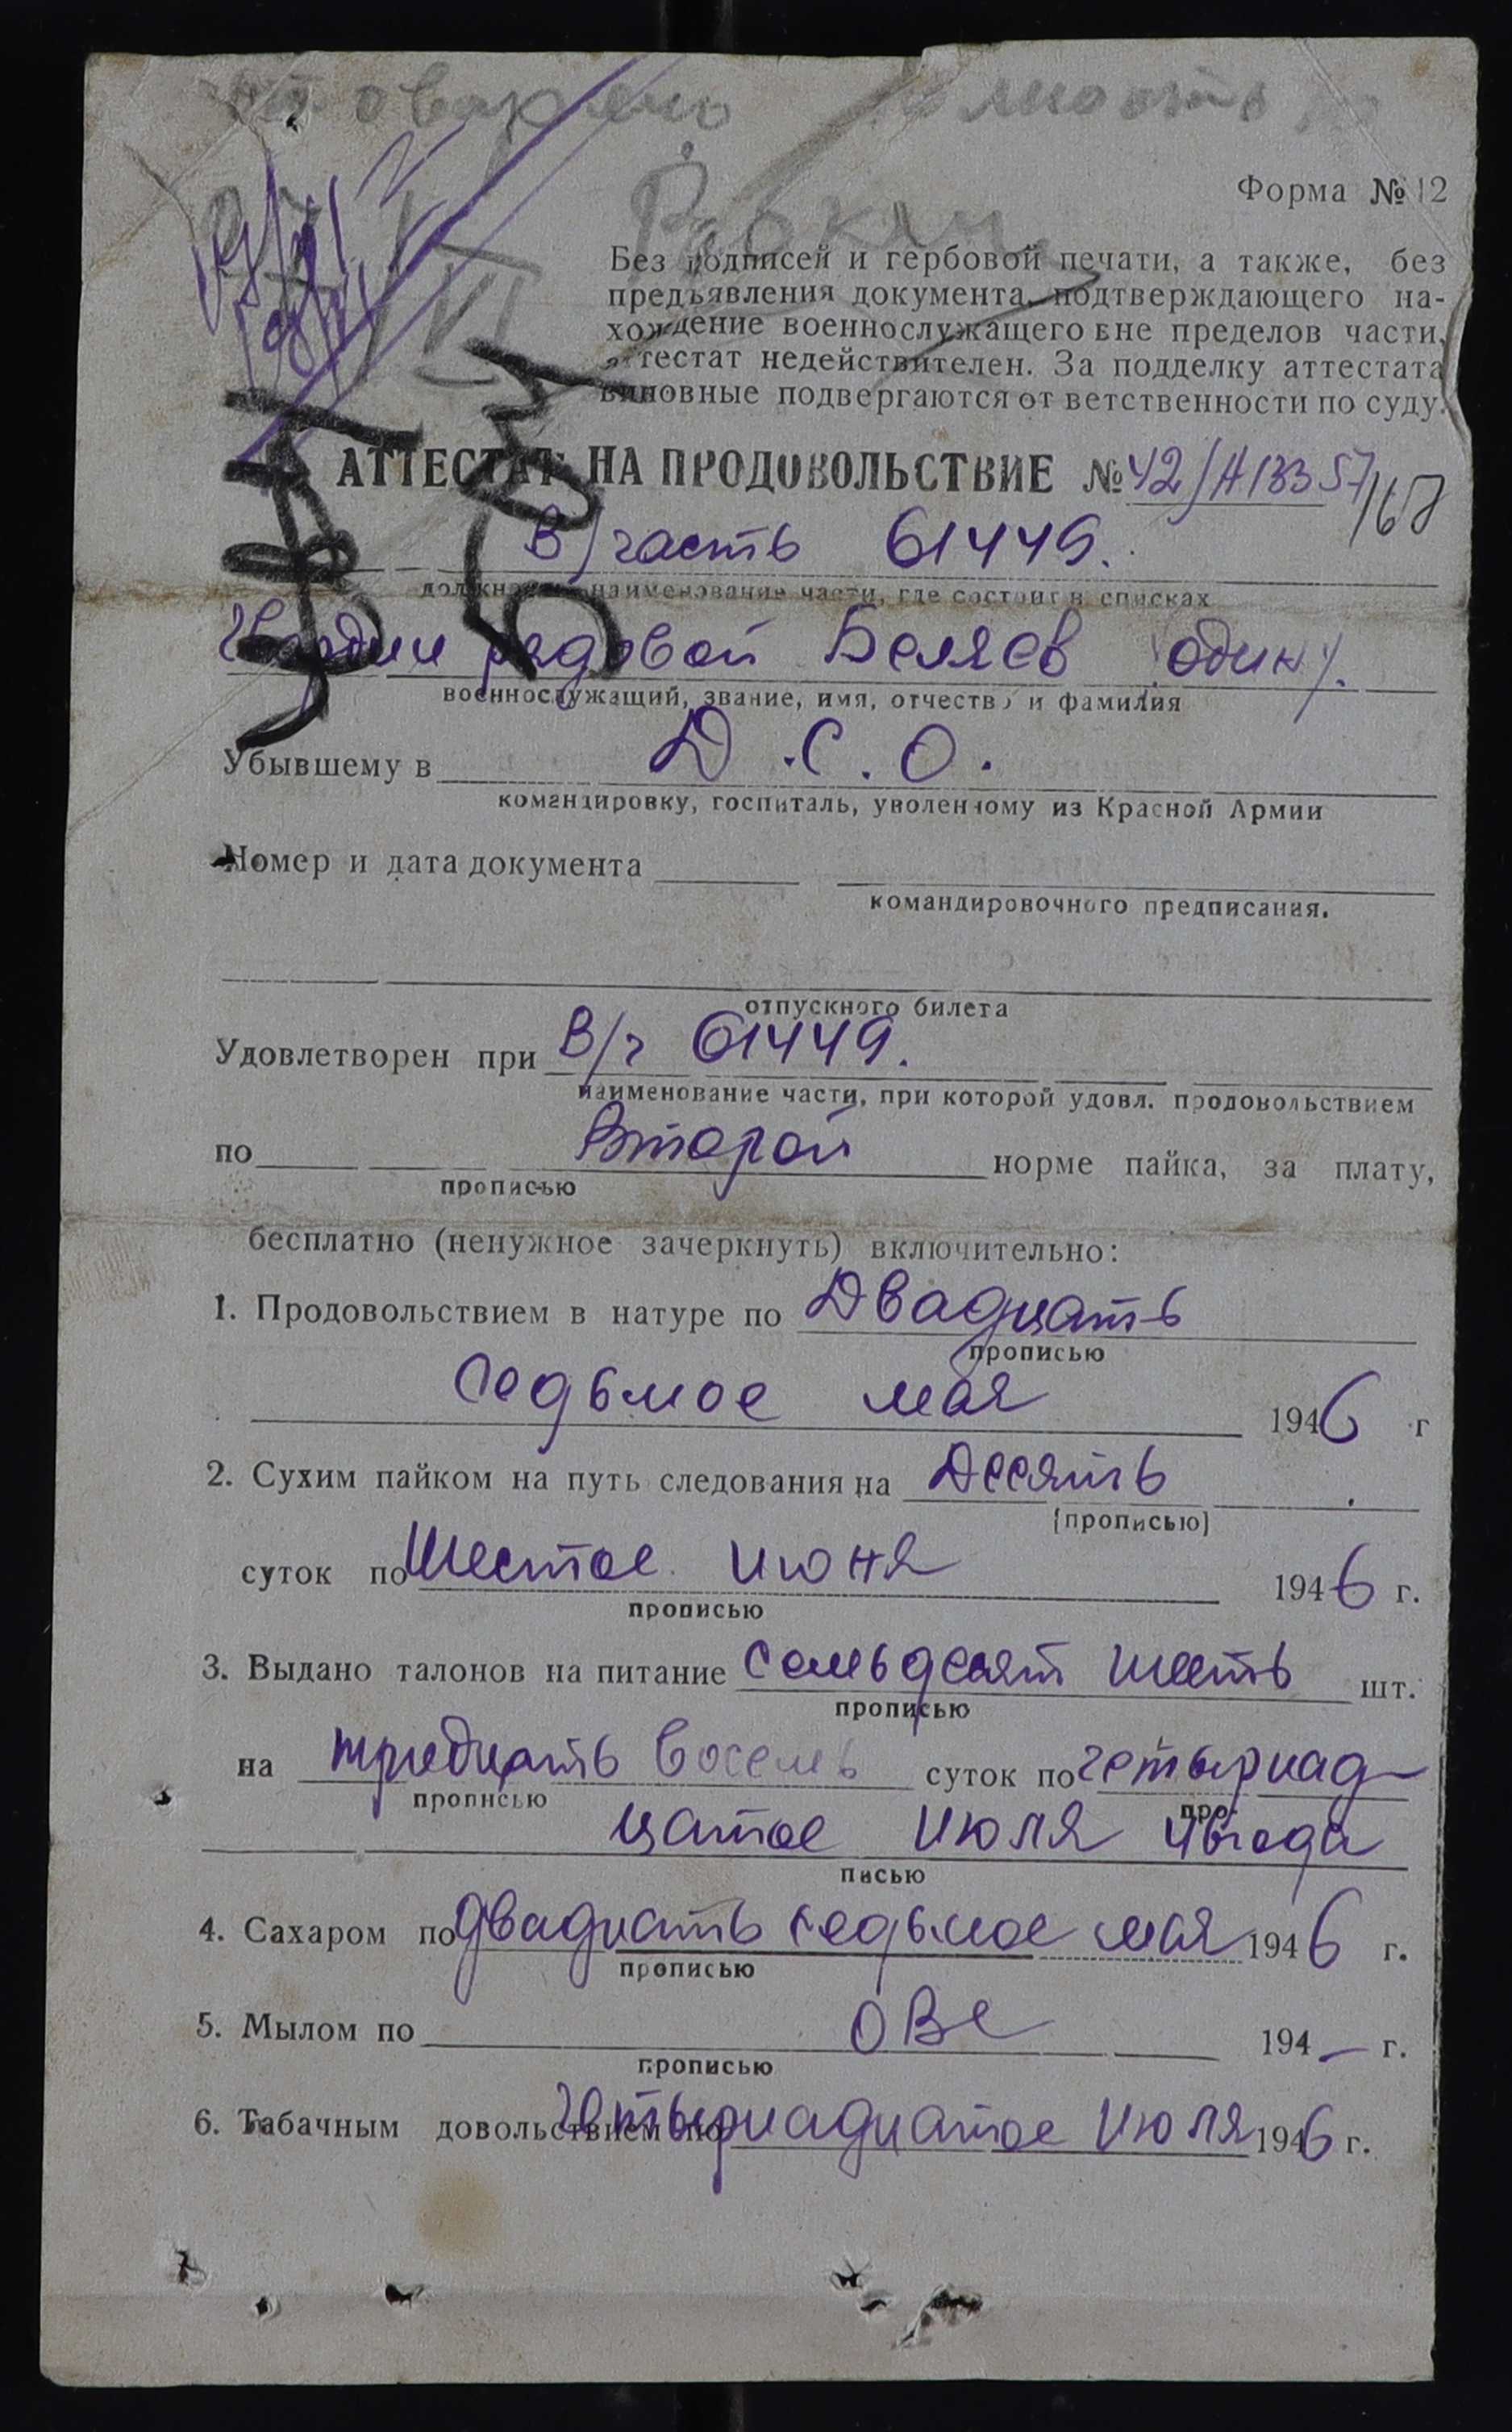 Форма № 12
Без подписей и гербовой печати, а также, без
предъявления документа, подтверждающего на-
хождение военнослужащего вне пределов части,
аттестат недействителен. За подделку аттестата
виновные подвергаются от ветственности по суду.
АТТЕСТАТ НА ПРОДОВОЛЬСТВИЕ № 42/А13357/67
В/часть 61449.
должность наименование части, где состоит в списках
Гвардии рядовой Беляев (один).
военнослужащий, звание, имя, отчество и фамилия
Убывшему в Д.С.О.
командировку, госпиталь, уволенному из Красной Армии
Номер и дата документа
командировочного предписания.
отпускного билета
Удовлетворен при В/ч 61449.
наименование части, при которой удовл. продовольствием
по Второй норме пайка, за плату,
прописью
бесплатно (ненужное зачеркнуть) включительно:
1. Продовольствием в натуре по Двадцать
прописью
седьмое мая 1946 г
2. Сухим пайком на путь следования на Десять
(прописью)
суток по Шестое июня 1946 г.
прописью
3. Выдано талонов на питание Семьдесят шесть шт.
прописью
на тридцать восемь суток по четырнад-
прописью про-
цатое июля 46 года
писью
4. Сахаром по двадцать седьмое мая 1946 г.
прописью
5. Мылом по 194– г.
прописью
6. Табачным довольствием по Четырнадцатое Июля 1946 г.